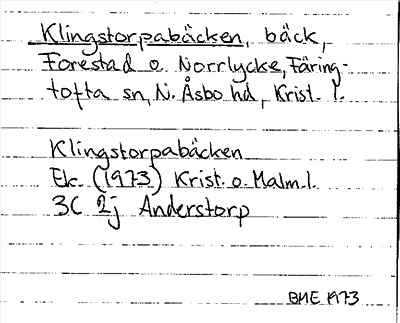 Klingstorpabäcken, bäck,
Forestad o. Norrlycke, Färing-
tofta sn, N. Åsbo hd, Krist. l.
Klingstorpabäcken
Ek. (1973) Krist. o. Malm. l.
3C 2j Anderstorp
BME 1973